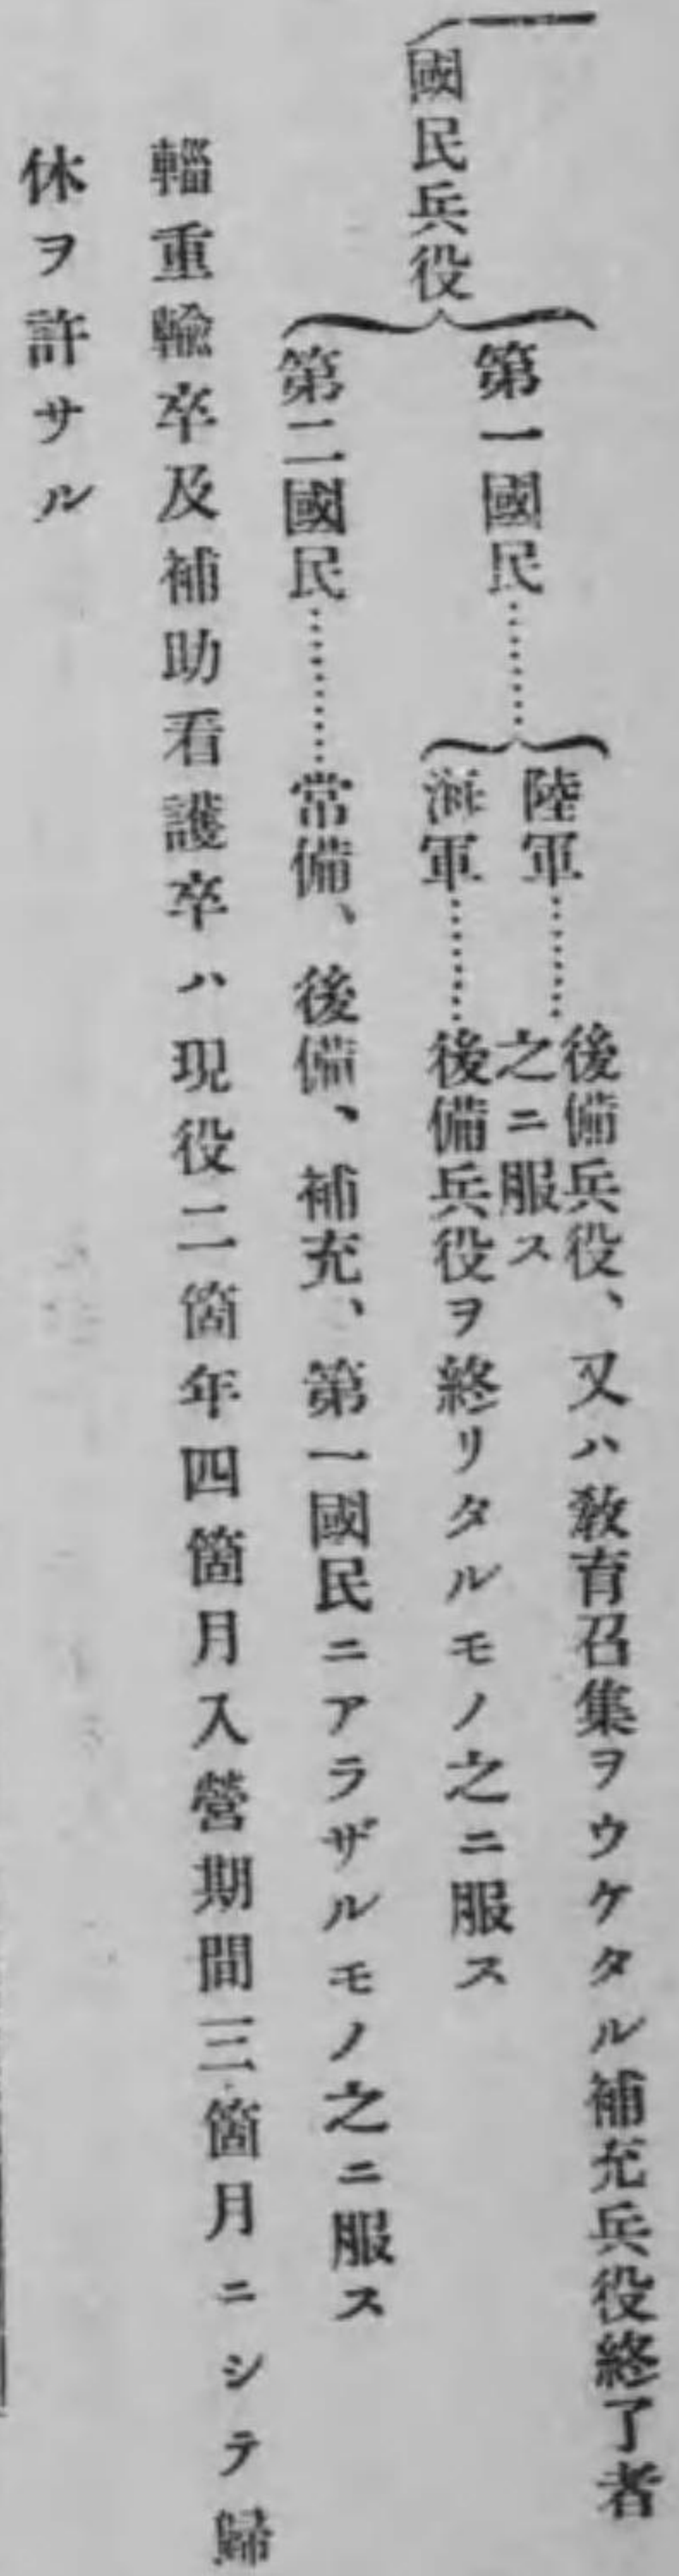 國民兵役
第一國民
陸軍
後備兵役、又ハ敎育召集ヲウケタル補充兵役終了者
之ニ服ス
海軍
後備兵役ヲ終リタルモノ之ニ服ス
第二國民
常備、後備、補充、第一國民ニアラザルモノ之ニ服ス
輜重輸卒及補助看護卒ハ現役二箇年四箇月入營期間三箇月ニシテ歸
休ヲ許サル